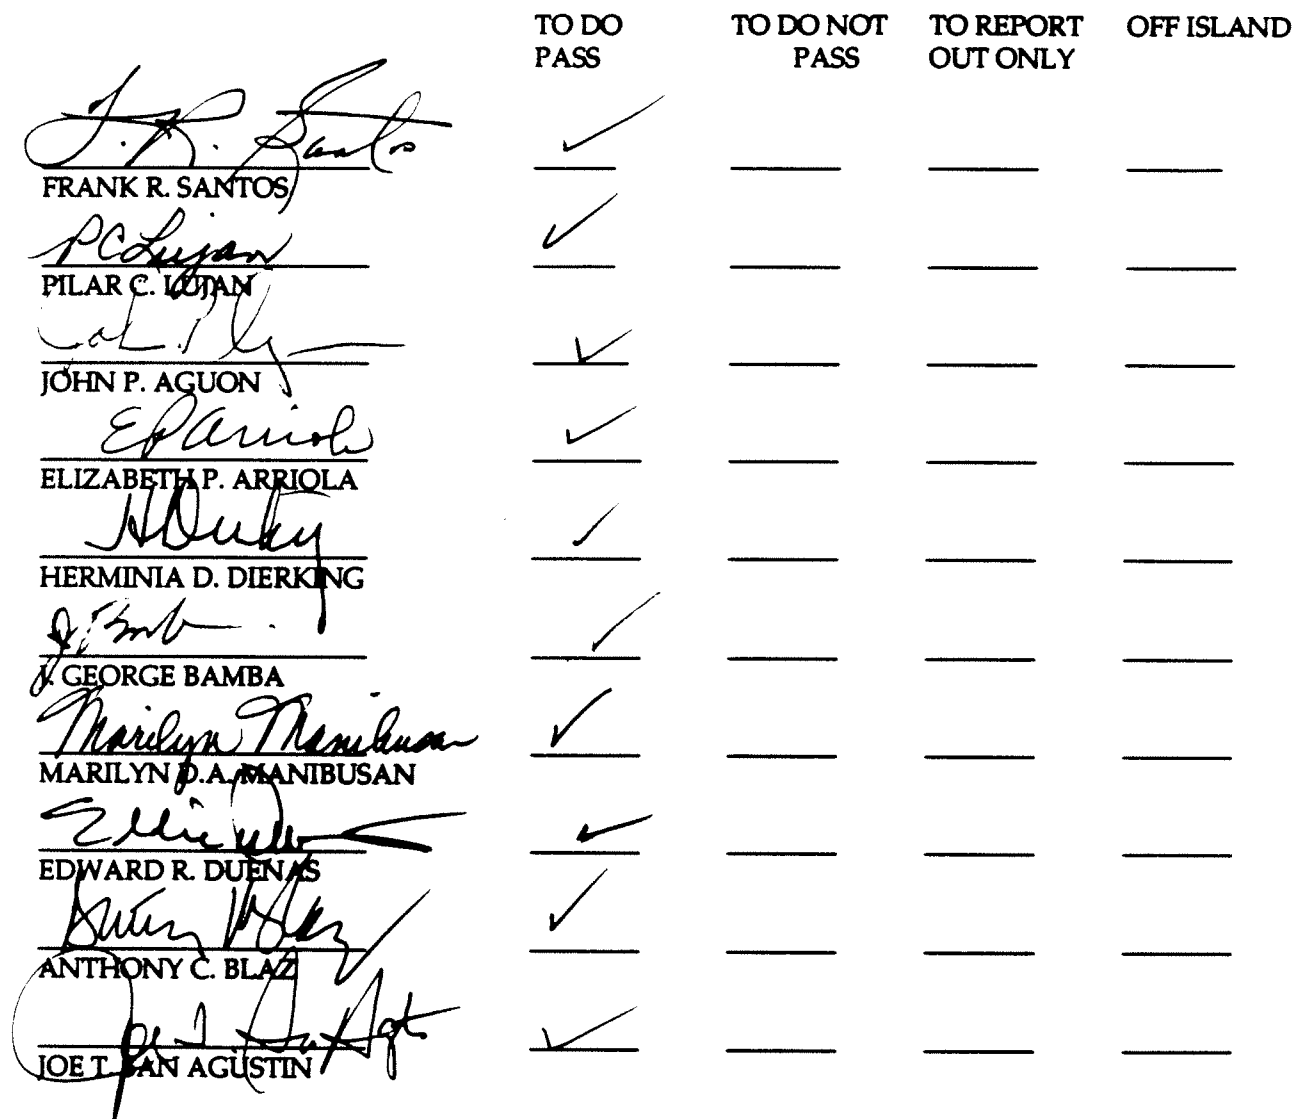 TO DO TO DO NOT TO REPORT OFF ISLAND
PASS PASS OUT ONLY
F. R. Santos ✓
FRANK R. SANTOS
PC Lujan ✓
PILAR C. LUJAN
✓
JOHN P. AGUON
EP Arriola ✓
ELIZABETH P. ARRIOLA
HDierking ✓
HERMINIA D. DIERKING
J Bamba ✓
J. GEORGE BAMBA
Marilyn Manibusan ✓
MARILYN D.A. MANIBUSAN
✓
EDWARD R. DUENAS
✓
ANTHONY C. BLAZ
Joe T. San Agustin ✓
JOE T. SAN AGUSTIN